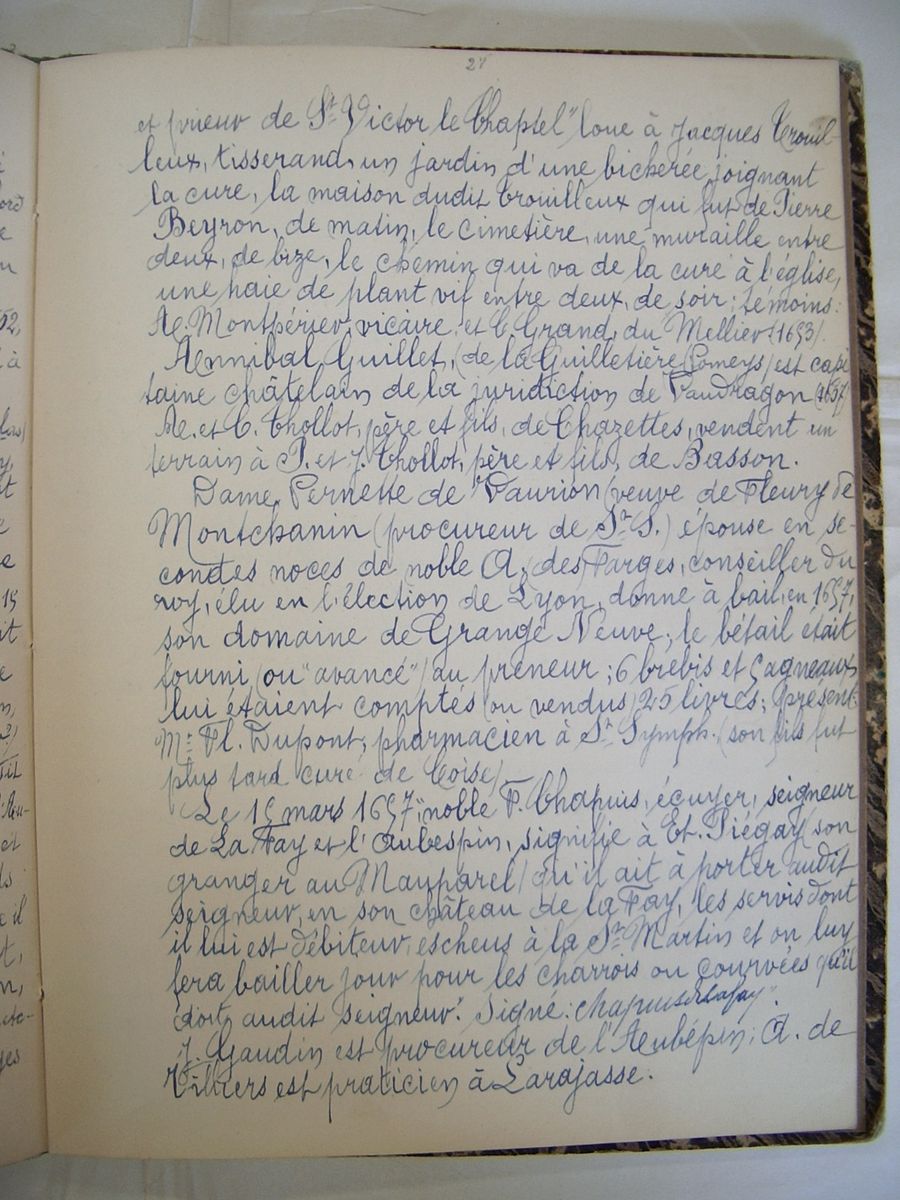 27
et prieur de St Victor le Chaptel" loue à Jacques Trouil
leux, tisserand, un jardin d'une bicherée, joignant
la cure, la maison dudit Trouilleux qui fut de Pierre
Beyron, de matin, le cimetière, une muraille entre
deux, de bize, le chemin qui va de la cure à l'église,
une haie de plant vif entre deux, de soir; témoins:
A. Montpérier, vicaire et C. Grand, du Mellier (1653).
Annibal Guillet, (de la Guilletière, Pomeys) est capi
taine châtelain de la juridiction de Vaudragon (1657)
A. et C. Thollot, père et fils, de Chazettes, vendent un
terrain à P. et J. Thollot, père et fils, de Basson.
Dame Pernette de Vaurion (veuve de Fleury de
Montchanin (procureur de St S.) épouse en se-
condes noces de noble A. des Farges, conseiller du
roy, élu en l'élection de Lyon, donne à bail, en 1657,
son domaine de Grange Neuve; le bétail était
fourni (ou "avancé") au preneur; 6 brebis et 5 agneaux
lui étaient comptés (ou vendus) 25 livres; présent:
Mr Fl. Dupont, pharmacien à St Symph. (son fils fut
plus tard curé de Coise)
Le 15 mars 1657, "noble F. Chapuis, écuyer, seigneur
de La Fay et l'Aubespin, signifie à Et. Piégay (son
granger au Mauparel) qu'il ait à porter audit
seigneur, en son château de la Fay, les servis dont
il lui est débiteur, escheus à la St Martin et on luy
fera bailler jour pour les charrois ou courvées qu'il
doit audit seigneur". Signé: Chapuis de Lafay".
J. Gaudin est procureur de l'Aubépin; A. de
Villiers est praticien à Larajasse.